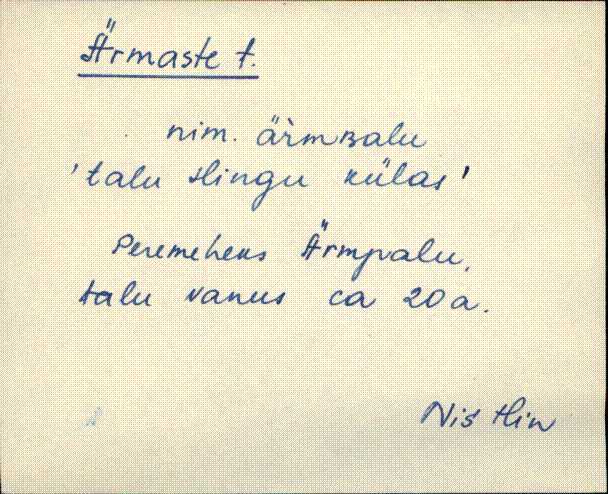 Ärmaste t.
nim. ärmʙalu
'talu Hingu külas'
Peremeheks Ärmpalu,
talu vanus ca 20 a.
Nis Hin